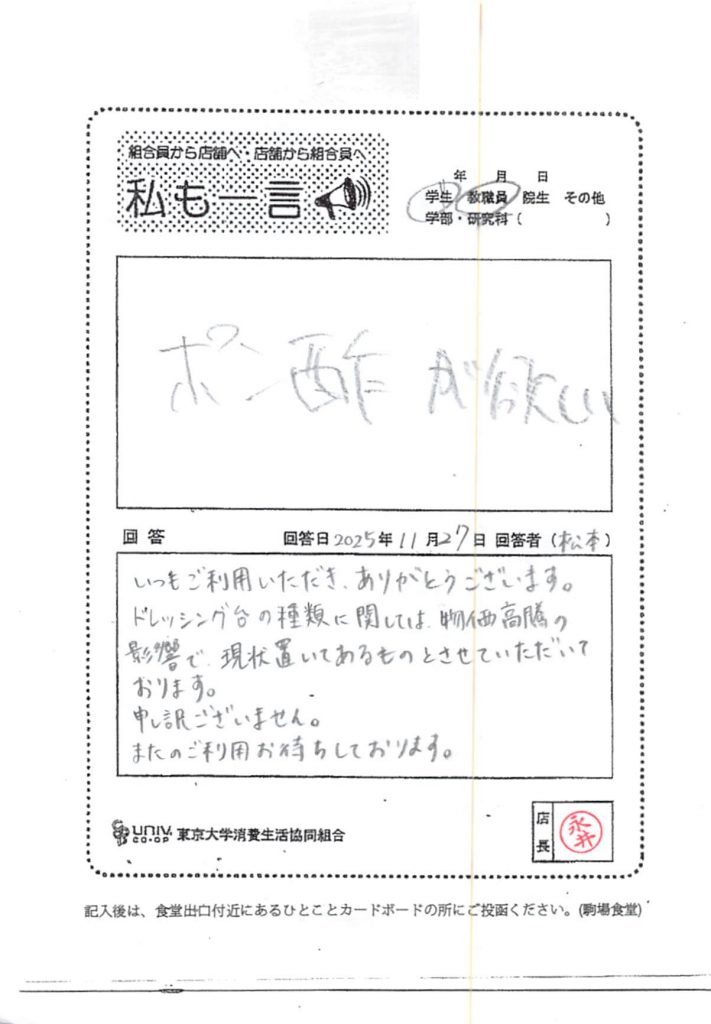 組合員から店舗へ・店舗から組合員へ
私も一言
年 月 日
学生 教職員 院生 その他
学部・研究科 ( )
ポン酢が欲しい
回答 回答日 2025年 11月27日 回答者 (松本)
いつもご利用いただき、ありがとうございます。
ドレッシング台の種類に関しては、物価高騰の
影響で、現状置いてあるものとさせていただいて
おります。
申し訳ございません。
またのご利用お待ちしております。
UNIV. CO-OP 東京大学消費生活協同組合
店長 永井
記入後は、食堂出口付近にあるひとことカードボードの所にご投函ください。(駒場食堂)